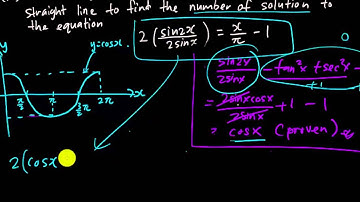 straight line to find the number of solution to
the equation
2(sin2x/2sinx) = x/π - 1
y
y=cosx
π/2 π 3/2π 2π x
sin2x/2sinx - tan²x + sec²x -
= 2sinxcosx/2sinx + 1 - 1
= cosx (proven)
2(cosx